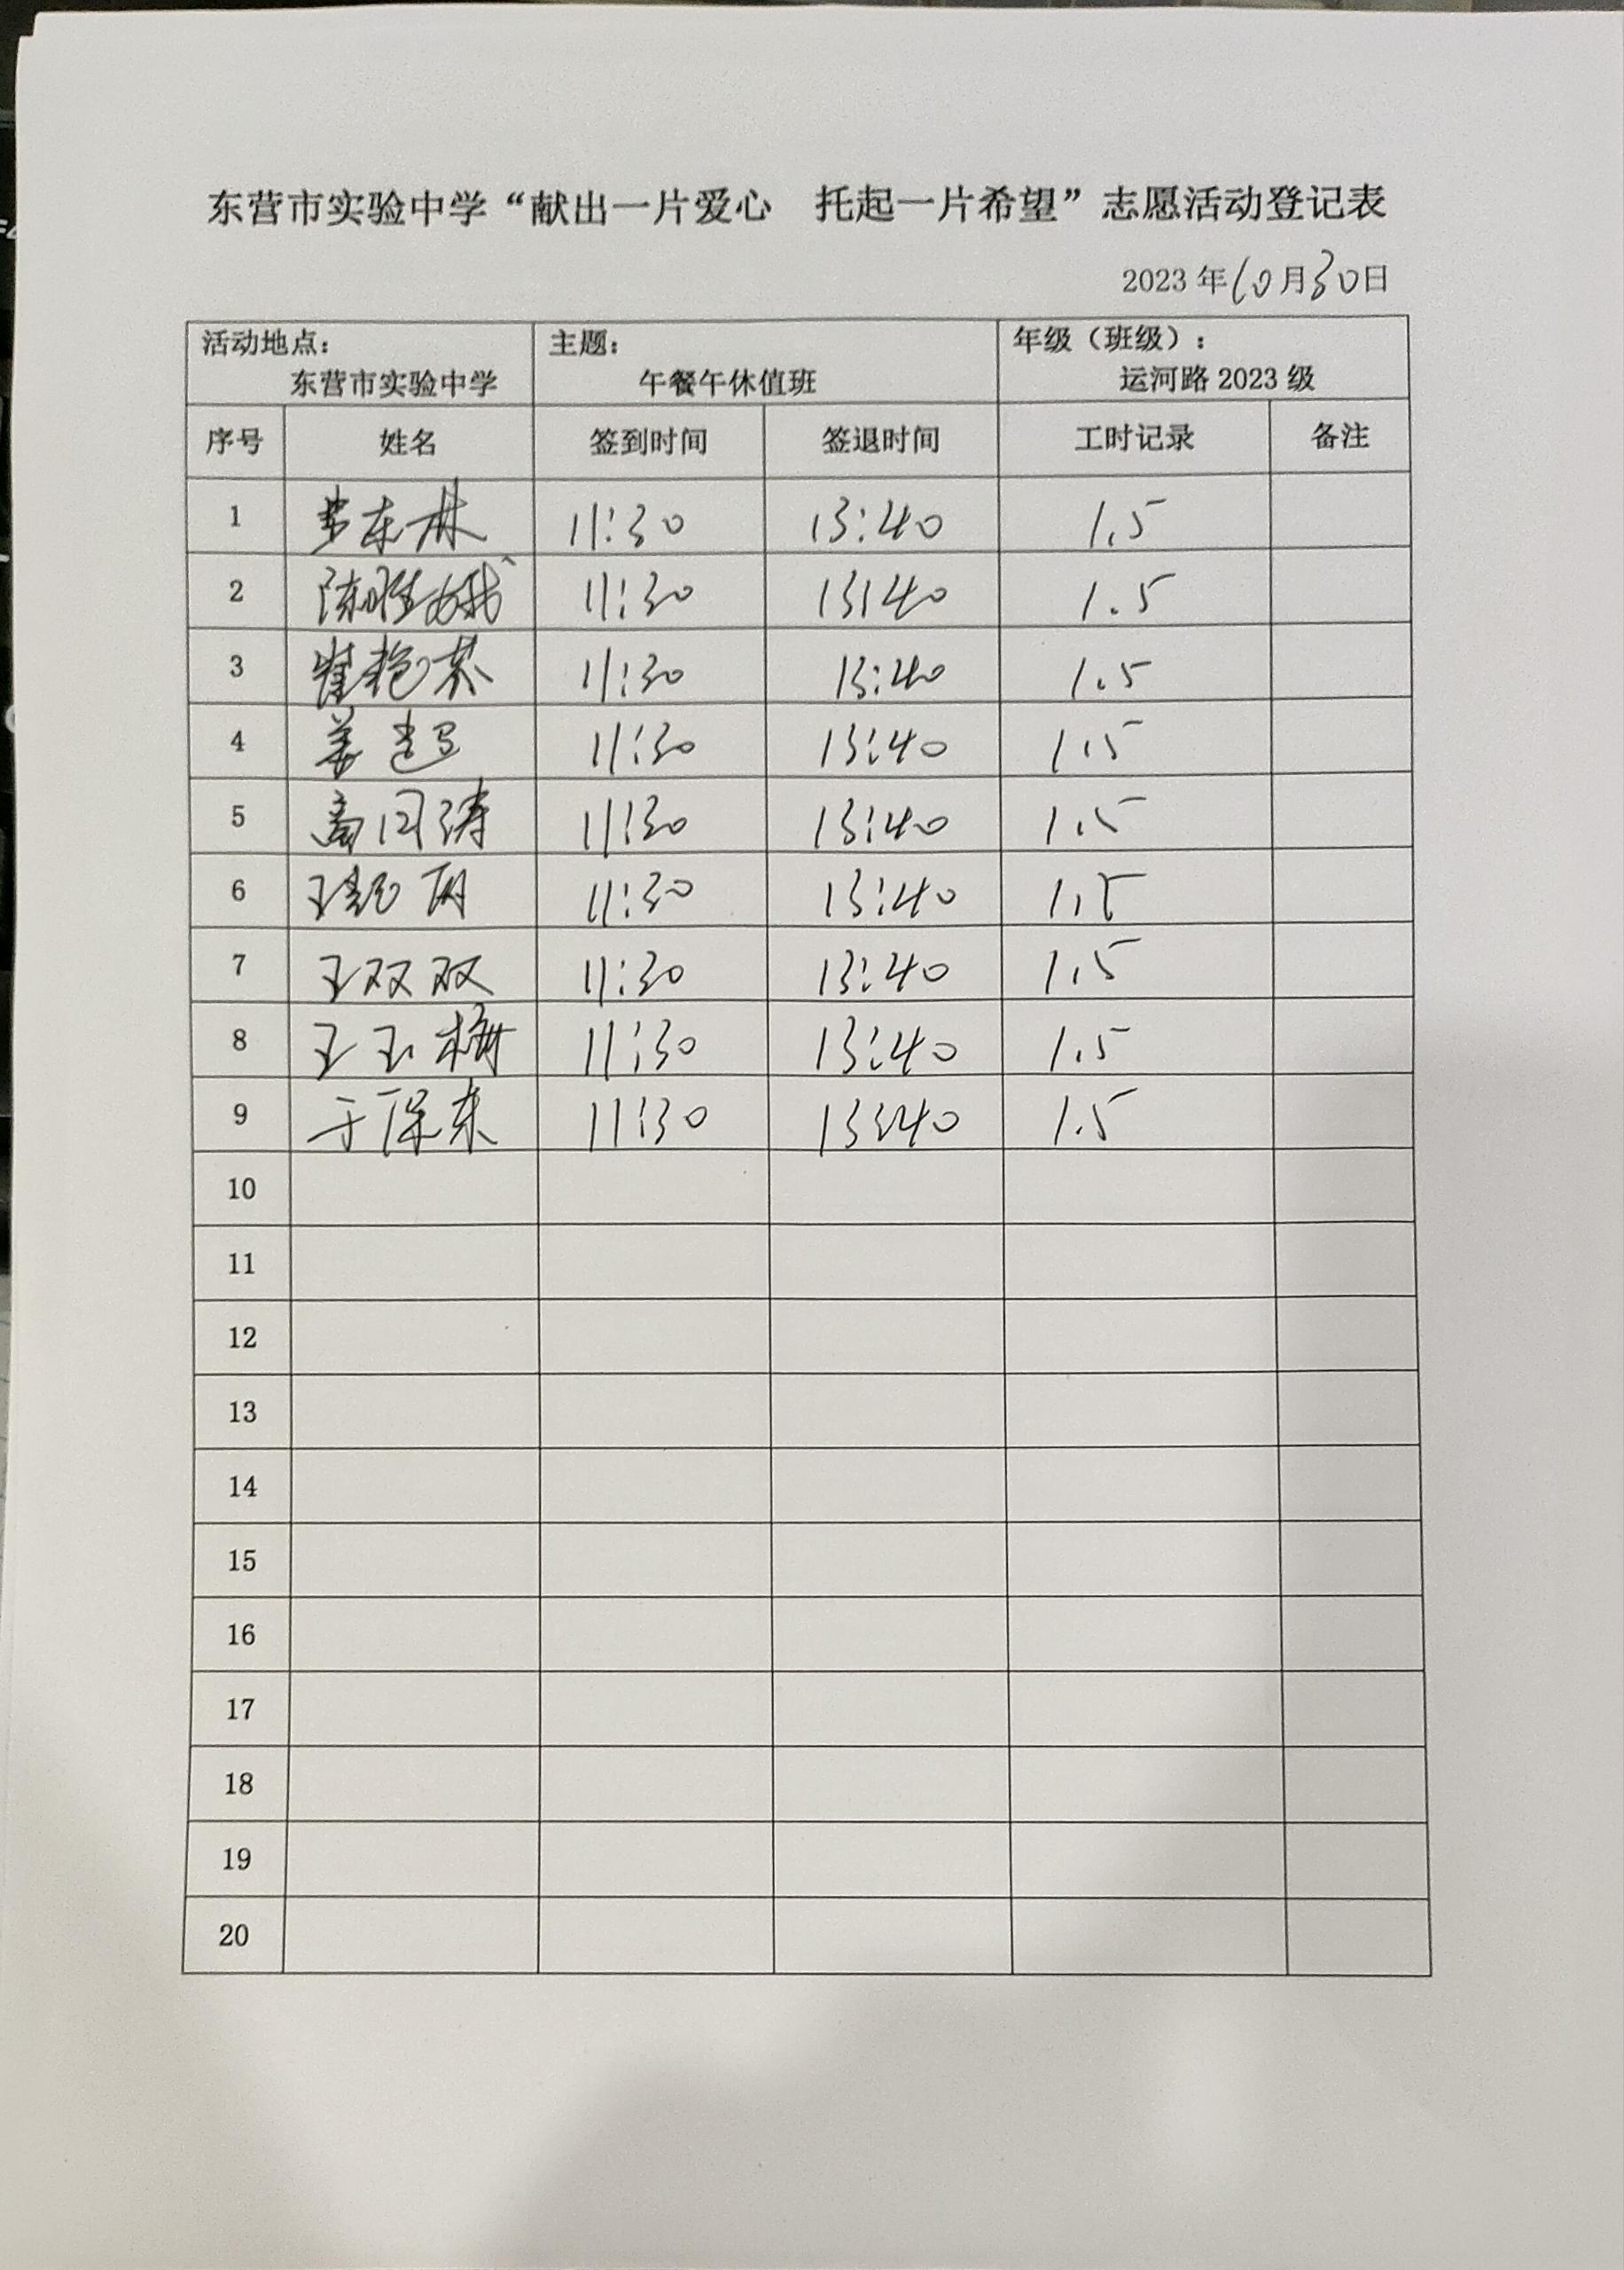 东营市实验中学“献出一片爱心 托起一片希望”志愿活动登记表
2023年10月30日
活动地点： 主题： 年级（班级）：
东营市实验中学 午餐午休值班 运河路2023级
序号 姓名 签到时间 签退时间 工时记录 备注
1 11:30 13:40 1.5
2 陈胜娥 11:30 13:40 1.5
3 崔艳 11:30 13:40 1.5
4 姜 11:30 13:40 1.5
5 高同涛 11:30 13:40 1.5
6 王 11:30 13:40 1.5
7 王双双 11:30 13:40 1.5
8 王玉梅 11:30 13:40 1.5
9 于保东 11:30 13:40 1.5
10
11
12
13
14
15
16
17
18
19
20